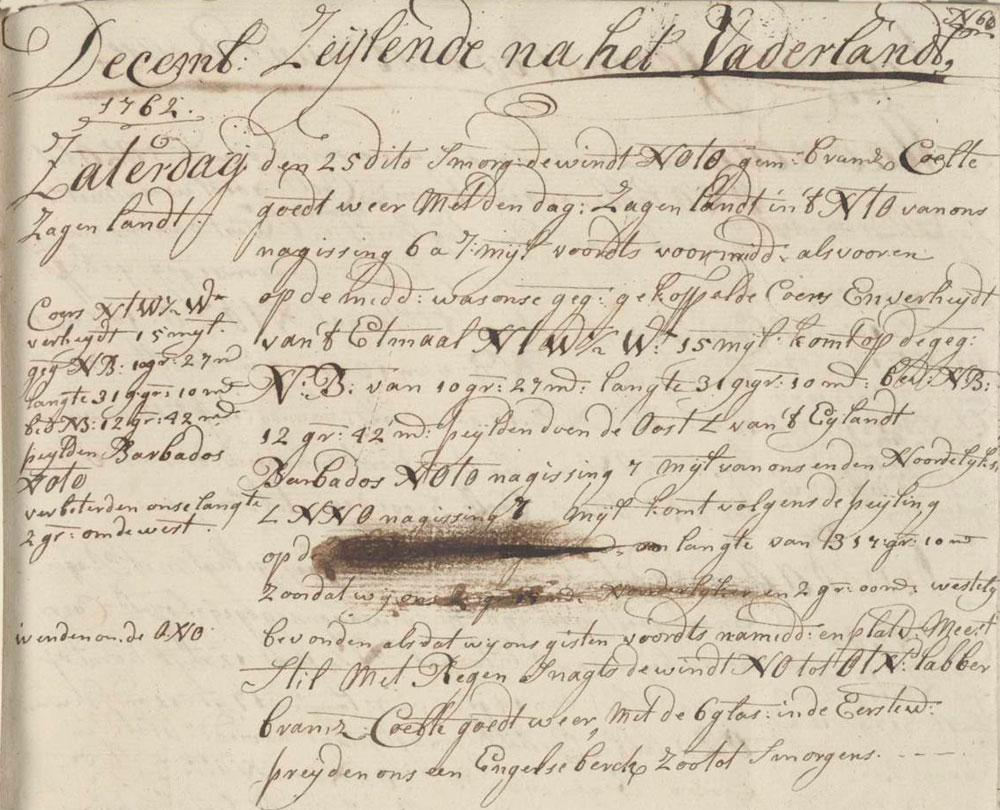 N 60
Decemb: Zeijlende na het Vaderlandt,
1762.
Zaterdag den 25 dito Smorg: de windt NOtO gem: bramz Coelte
Zagen landt: goedt weer Met den dag: Zagen landt in't NtO van ons
na gissing 6 a 7: mijl voordts voormidd: als vooren
op de midd: was onse geg: gekoppelde Coers En verheijdt
van't Etmaal NtW½Wt 15 mijl: komt op de geg:
N: B: van 10 gr: 27 md: langte 319 gr: 10 md: bev: NB:
12 gr: 42 md: peijlden doen de Oost L van't Eijlandt
Barbados NOtO na gissing 7 mijl van ons en den Noordelijks
L NNO na gissing 7 mijl komt volgens de peijling
op d langte van 317: gr: 10 md
Zoo dat wij ons en 2 gr: oomd: westelij
bevonden als dat wij ons gisten voordts namidd: en platv: Meest
Stil Met Regen Snagts de windt NO tot OtN: labber
bramz Coelte goedt weer, Met de 6 glas: in de Eerste w:
preijden ons een Engelse berck Zoo tot Smorgens.
Coers NtW½Wt
verheijdt 15 mijl
geg NB: 10 gr: 27 md
langte 319 gr: 10 md
bev: NB: 12 gr: 42 md
peijlden Barbados
NOtO
verbeterden onse langte
2 gr: om de west.
wenden om de ONO